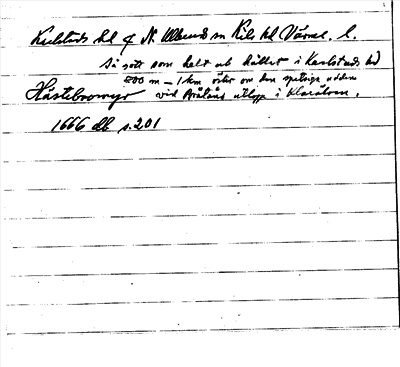 Karlstads hd & N Ullerud sn Kils hd Värml. l.
så gott som helt ut hållet i Karlstads hd
800 m – 1 km öster om den spetsiga udden
Hästebromyr vid Acksjöns utlopp i Klarälven.
1666 db s. 201